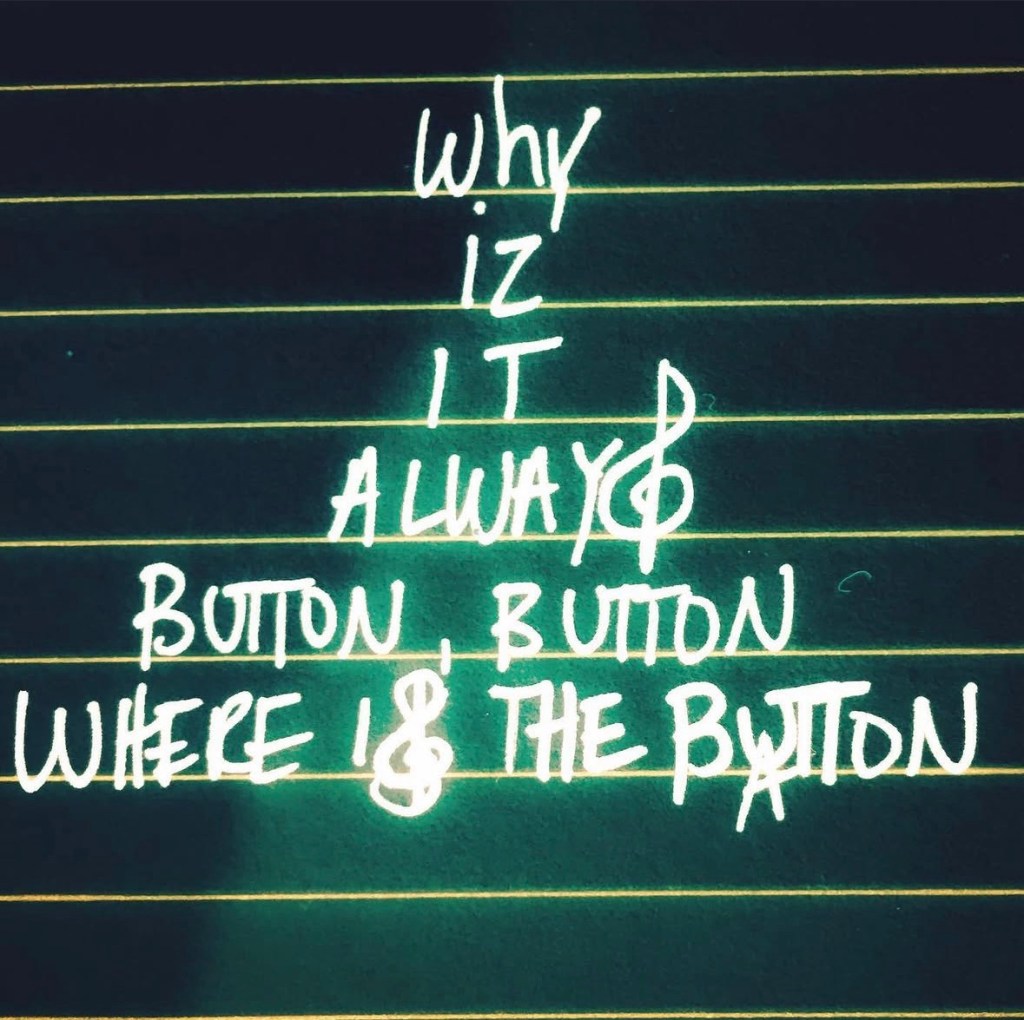 Why
iz
IT
ALWAY𝄞
BUTTON, BUTTON
WHERE I𝄞 THE BUTTON